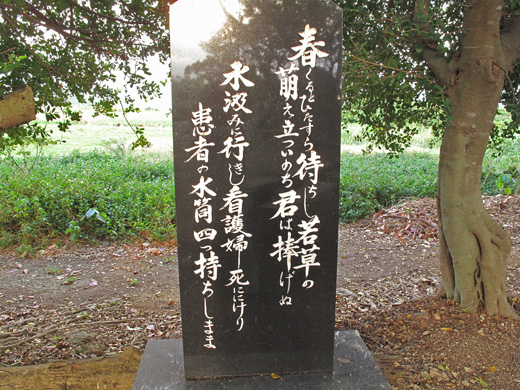 春くるひたすら待ちし若草の
萌え立ついのち君は捧げぬ
水汲みに行きし看護婦死ににけり
患者の水筒四つ持ちしまま